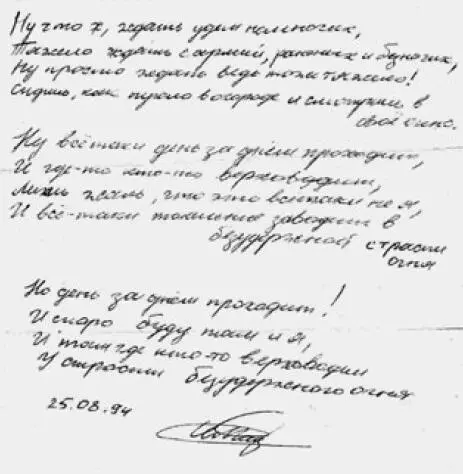 Ну что ж, ждать удел немногих,
Тяжело ждать с армий, раненых и безногих,
Ну просто ждать ведь тоже тяжело!
Сидишь, как пугало в огороде и смотришь в
своё окно.
Ну всё таки день за днём проходит,
И где-то кто-то верховодит,
Лишь жаль, что это всё таки не я,
И всё-таки томление заводит в
безудержной страсти
огня
Но день за днём проходит!
И скоро буду там и я,
И там где кто то верховодил
У страсти безудержного огня
25.08.94